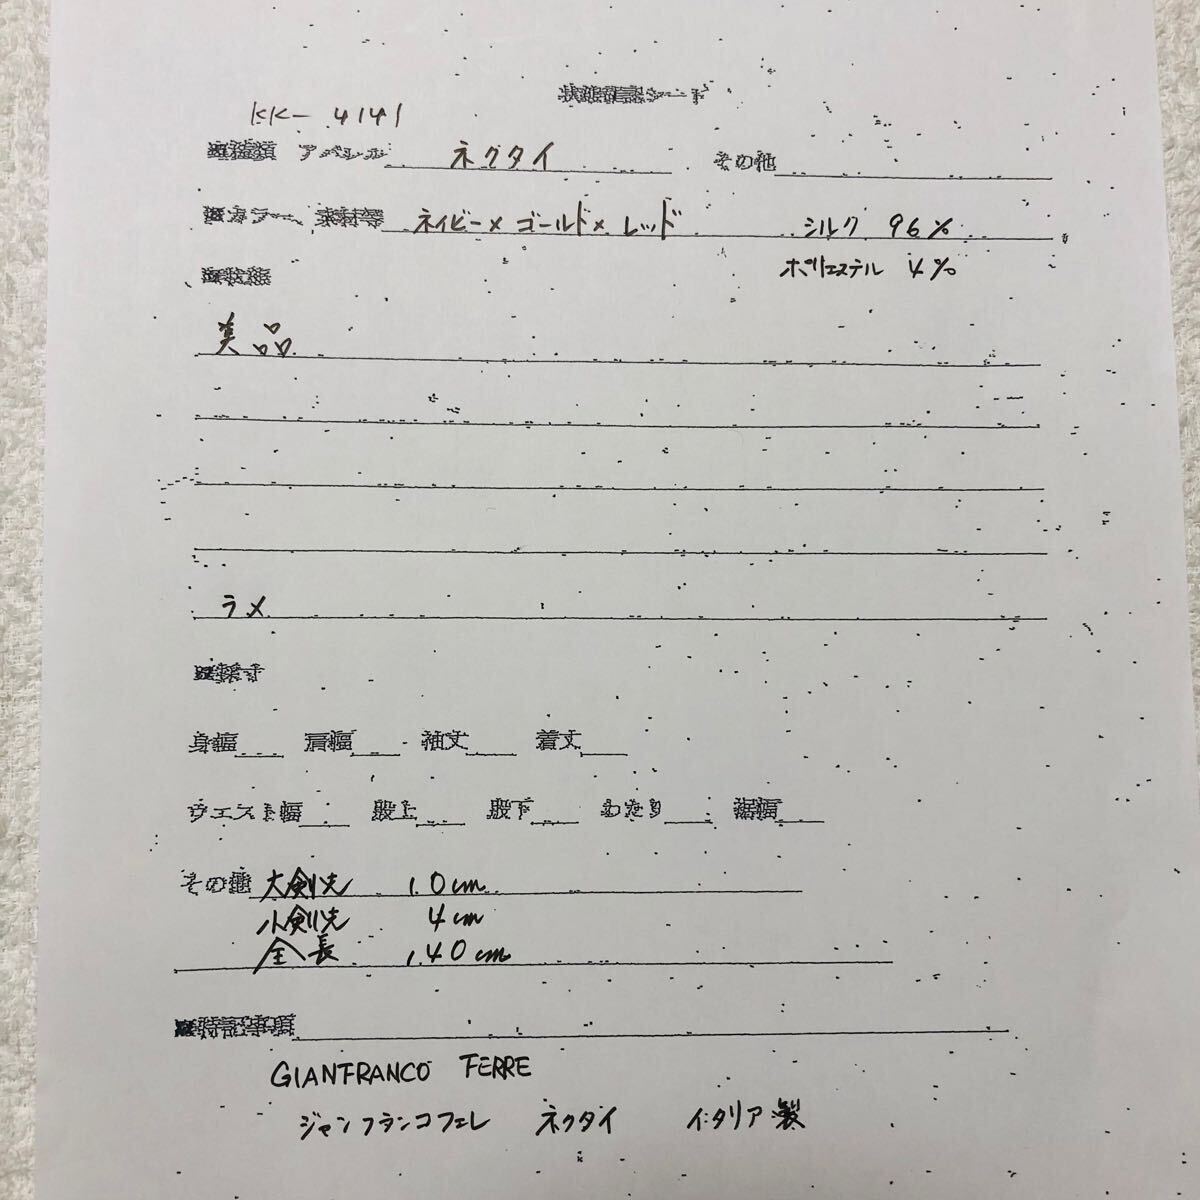 状態確認シート
KK- 4141
■種類 アパレル ネクタイ その他
■カラー、素材等 ネイビー× ゴールド× レッド シルク 96%
ポリエステル 4%
■状態
美品
ラメ
■採寸
身幅 肩幅 袖丈 着丈
ウエスト幅 股上 股下 わたり 裾幅
その他 大剣先 10cm
小剣先 4cm
全長 140cm
■特記事項
GIANFRANCO FERRE
ジャンフランコフェレ ネクタイ イタリア製